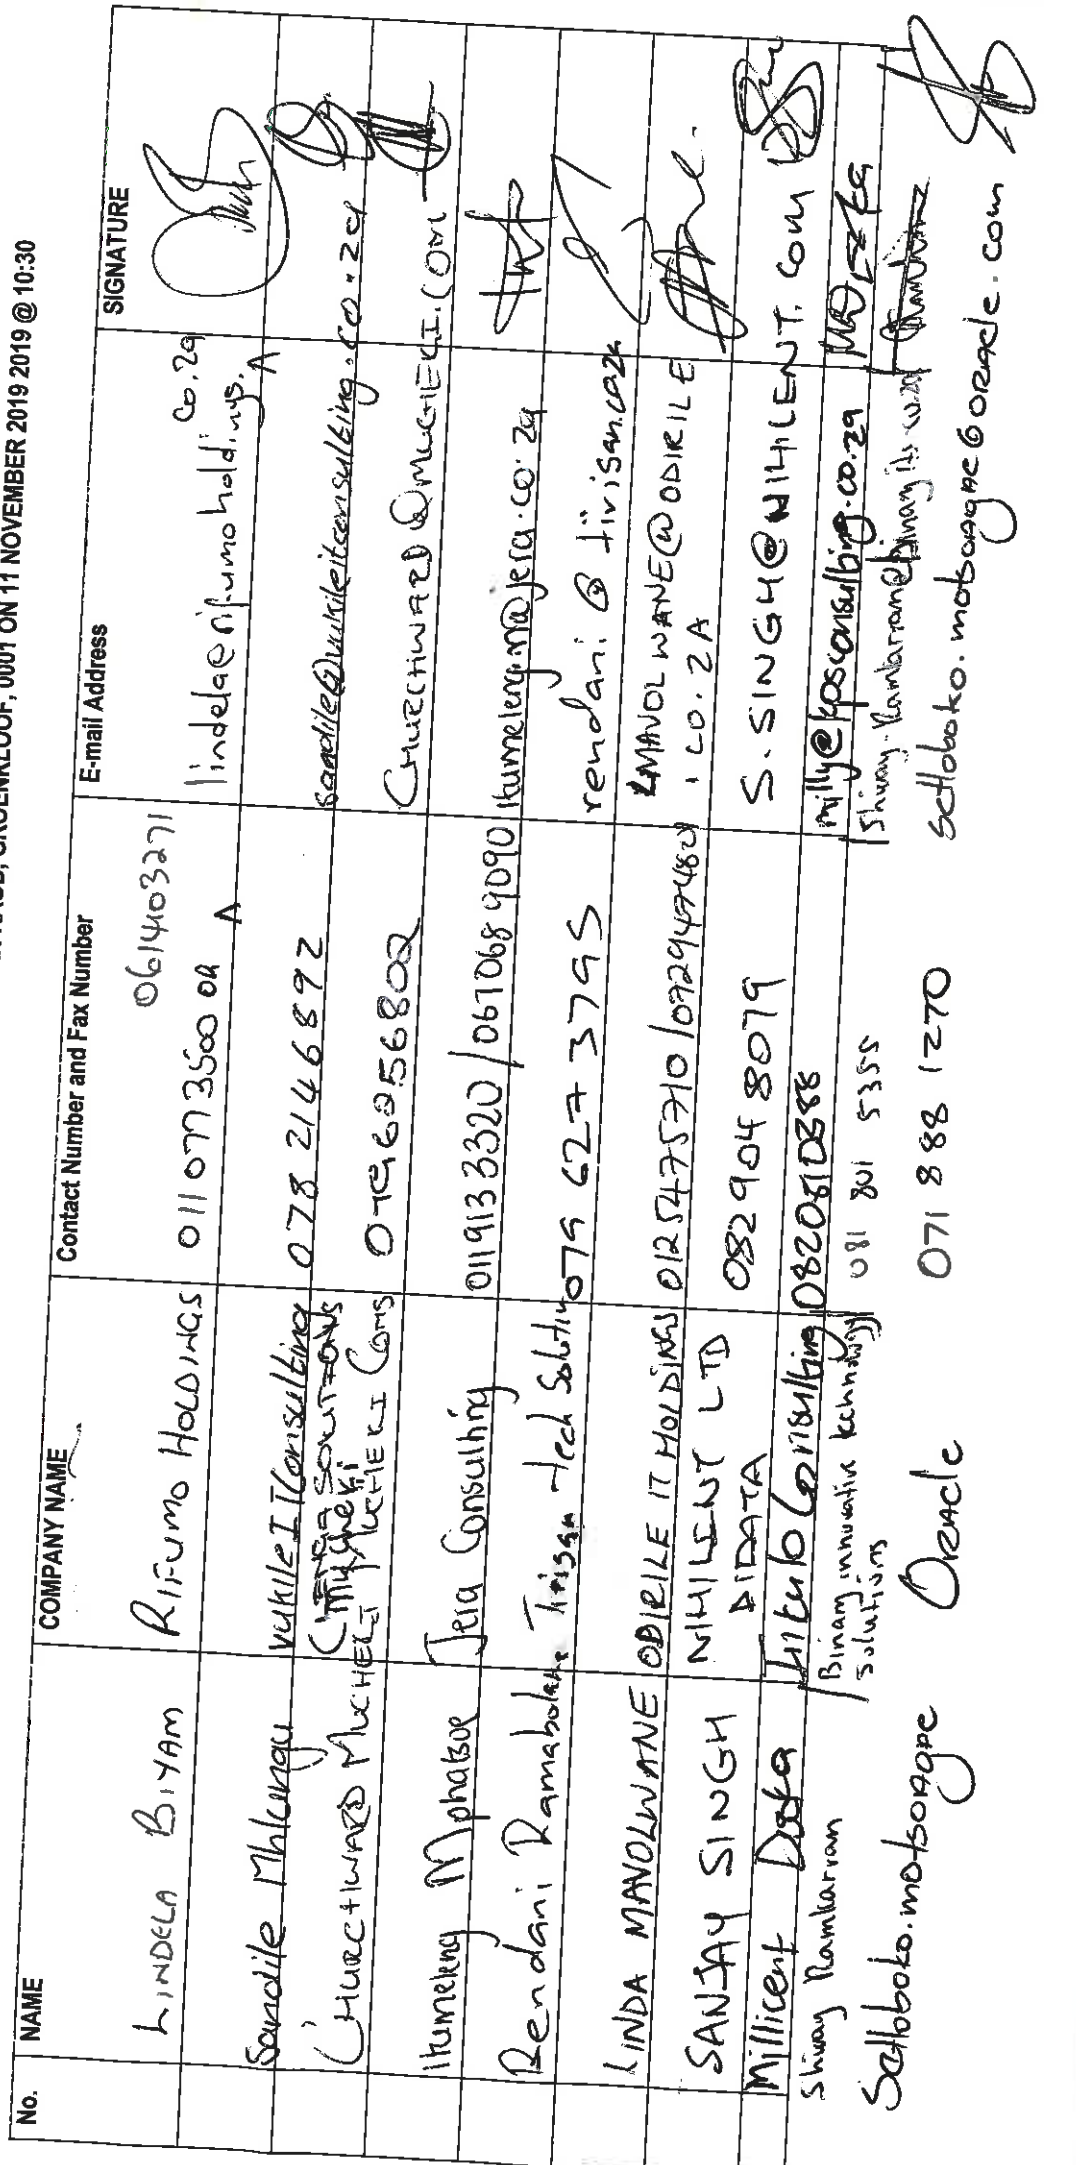 GROENKLOOF, 0001 ON 11 NOVEMBER 2019 2019 @ 10:30
No. NAME COMPANY NAME Contact Number and Fax Number E-mail Address SIGNATURE
0614103271 co.za
LINDELA BIYAM RIFUMO HOLDINGS 011 077 3500 OR lindela@rifumoholdings.
Sandile Mhlungu Vukile IT Consulting 078 214 6892 sandile@vukileitconsulting.co.za
CHURCHWARD MUCHEKI MUCHEKI COMS 0796256802 CHURCHWARD@MUCHEKI.COM
Itumeleng Mphatsoe Jera Consulting 0119133320/0670689090 Itumeleng@jera.co.za
Rendani Ramabolane Tirisan Tech Solution 079 627 3795 rendani@tirisan.co.za
LINDA MAVOLWANE ODIRILE IT HOLDINGS 0125475710/0729474820 LMAVOLWANE@ODIRILE
.CO.ZA
SANJAY SINGH NIHILENT LTD 082 904 8079 S.SINGH@NIHILENT.COM
DIDATA
Millicent Consulting 0820810388 milly@kpsconsulting.co.za
Shivay Ramkarran Binary innovative technology 081 801 5355
solutions
Setlboko.motsoagae Oracle 071 888 1270 setlboko.motsoagae@oracle.com